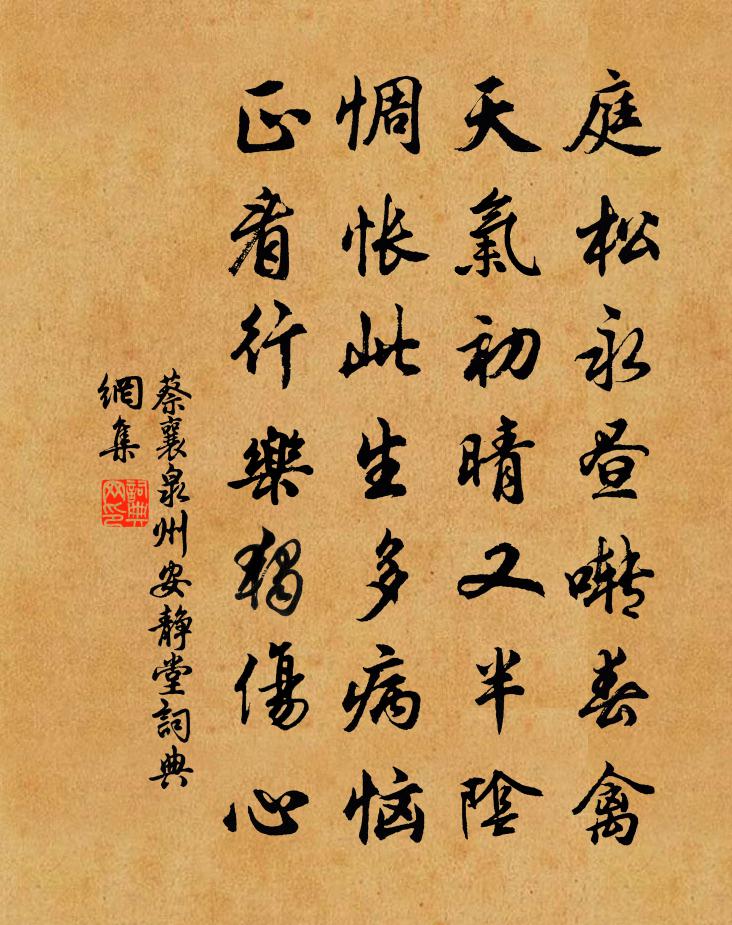 庭松永昼啭春禽
天氣初晴又半陰
惆怅此生多病恼
正看行樂獨傷心
蔡襄泉州安静堂詞典
網集
詞典
网印